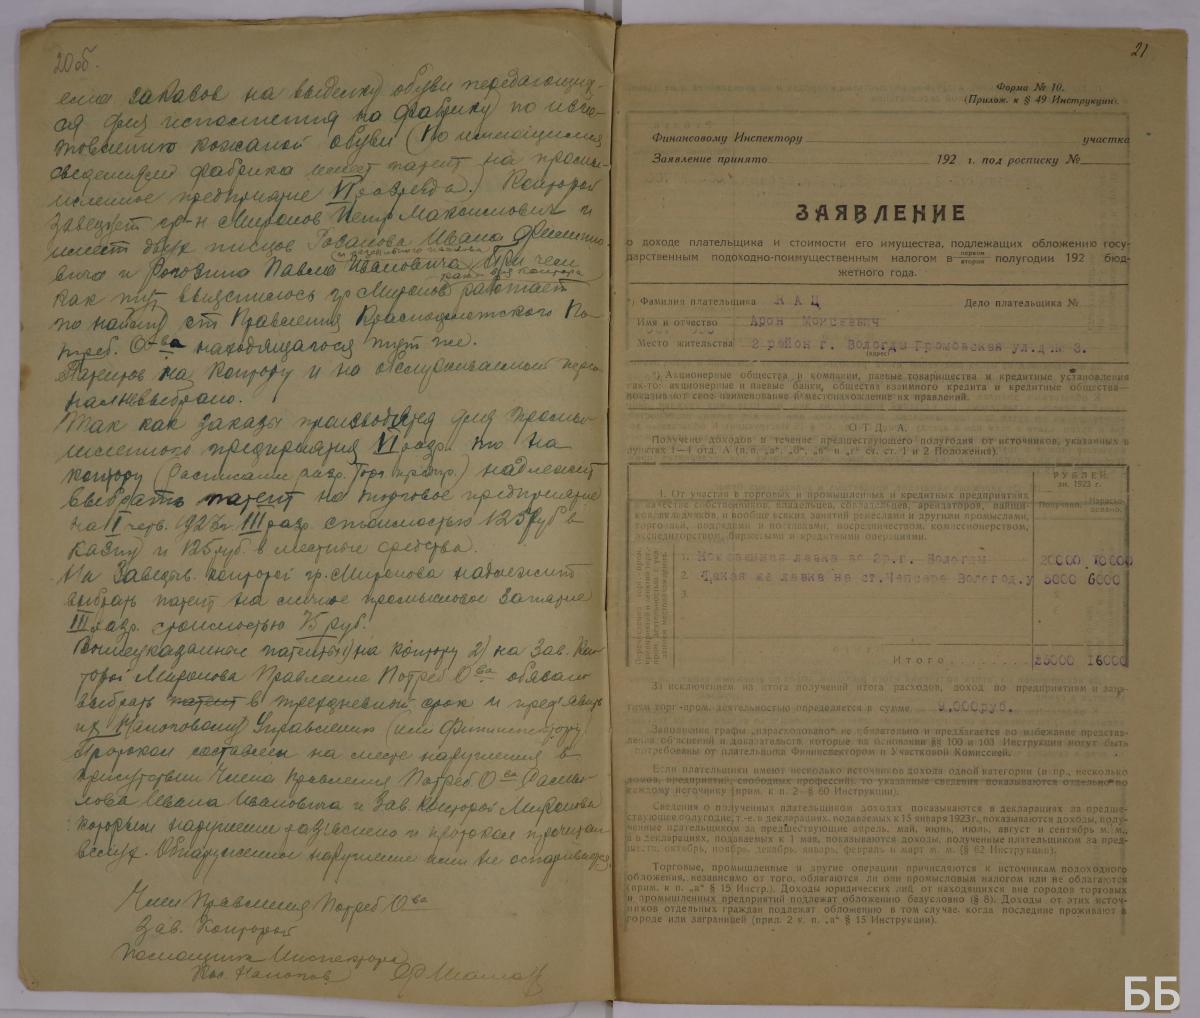 20об.
ема заказов на выделку обуви передающих-
ся для исполнения на фабрику по изго-
товлению кожаной обуви (по имеющимся
сведениям фабрика имеет патент на промы-
шленное предприятие VI разряда.) Конторой
заведует гр-н Миронов Петр Максимович и
имеет двух писцов Голанова Ивана
вича и Рогозина Павла Ивановича. При чем
как тут выяснилось гр. Миронов работает
по найму от Правления По-
треб. О-ва находящагося тут же.
Патентов на контору и на обслуживающий персо-
нал не выбрано.
Так как заказы производятся для промы-
шленного предприятия VI разр. то на
контору (Расписание разр. Торг. предпр.) надлежит
выбрать патент на торговое предприятие
на II 192 г. III разр. стоимостью 125 руб в
казну и 125 руб. в местные средства.
На Заведыв. конторой гр. Миронова надлежит
выбрать патент на личное промысловое занятие
III разр. стоимостью 75 руб.
Вышеуказанные патенты 1) на контору 2) на Зав. Кон-
торой Миронова Правление Потреб О-ва обязано
выбрать патент в трехдневный срок и предъявить
их Налоговому Управлению (или Фининспектору)
Протокол составлен на месте нарушения в
присутствии Члена Правления Потреб О-ва
Ивана Ивановича и Зав. конторой Миронова
которым нарушение раз'яснено и протокол прочитан
вслух. Обнаруженные нарушения ими не оспариваются.
Член Правления Потреб О-ва
Зав. Конторой
Помощник Инспектора
Кос. Налогов
21
Форма № 10.
(Прилож. к § 49 Инструкции).
Финансовому Инспектору участка
Заявление принято 192 г. под росписку №
ЗАЯВЛЕНИЕ
о доходе плательщика и стоимости его имущества, подлежащих обложению госу-
дарственным подоходно-поимущественным налогом в первом второй полугодии 192 бюд-
жетного года.
*) Фамилия плательщика КАЦ Дело плательщика №
Имя и отчество Арон Моисеевич
Место жительства 2 район г. Вологды Громовская ул. д № 3.
(адрес)
*) Акционерные общества и компании, паевые товарищества и кредитные установления
как-то: акционерные и паевые банки, общества взаимного кредита и кредитные общества—
показывают свое наименование и местонахождение их правлений.
ОТД. А.
Получено доходов в течение предшествующего полугодия от источников, указанных в
пунктах 1—4 отд. А (п.п. „а“, „б“, „в“ и „г“ ст. ст. 1 и 2 Положения).
РУБЛЕЙ
зн. 1923 г.
Получено. Израсхо-
довано.
1. От участия в торговых и промышленных и кредитных предприятиях
в качестве собственников, владельцев, совладельцев, арендаторов, пайщи-
ков, вкладчиков, и вообще всяких занятий ремеслами и другими промыслами,
торговлей, подрядами и поставками, посредничеством, комиссионерством,
экспедиторством, биржевыми и кредитными операциями.
1. лавка во 2р. г. Вологды 20000 10000
2. Такая же лавка на ст. Чепсара Вологод. у 5000 6000
3.
Итого 25000 16000
За исключением из итога получений итога расходов, доход по предприятиям и заня-
тиям торг.-пром. деятельностью определяется в сумме 9.000 руб.
Заполнение графы „израсходовано“ не обязательно и предлагается во избежание представ-
ления объяснений и доказательств, которые на основании §§ 100 и 103 Инструкции могут быть
потребованы от плательщика Фининспектором и Участковой Комиссией.
Если плательщики имеют несколько источников дохода одной категории (и пр., несколько
домов, предприятий, свободных профессий), то указанные сведения показываются отдельно по
каждому источнику (прим. к п. 2 § 60 Инструкции).
Сведения о полученных плательщиком доходах показываются в декларациях за предше-
ствующее полугодие, т.-е. в декларациях, подаваемых к 15 января 1923 г., показываются доходы, полу-
ченные плательщиком за предшествующие апрель, май, июнь, июль, август и сентябрь м. м.,
а в декларациях, подаваемых к 1 мая, показываются доходы, полученные плательщиком за пред-
шеств. октябрь, ноябрь, декабрь, январь, февраль и март м. м. (§ 62 Инструкции).
Торговые, промышленные и другие операции причисляются к источникам подоходного
обложения, независимо от того, облагаются ли они промысловым налогом или не облагаются
(прим. к п. „а“ § 15 Инстр.). Доходы юридических лиц от находящихся вне городов торговых
и промышленных предприятий подлежат обложению безусловно (§ 8). Доходы от этих источ-
ников отдельных граждан подлежат обложению в том случае, когда последние проживают в
городе или заграницей (прил. 2 к п. „а“ § 15 Инструкции).
ББ